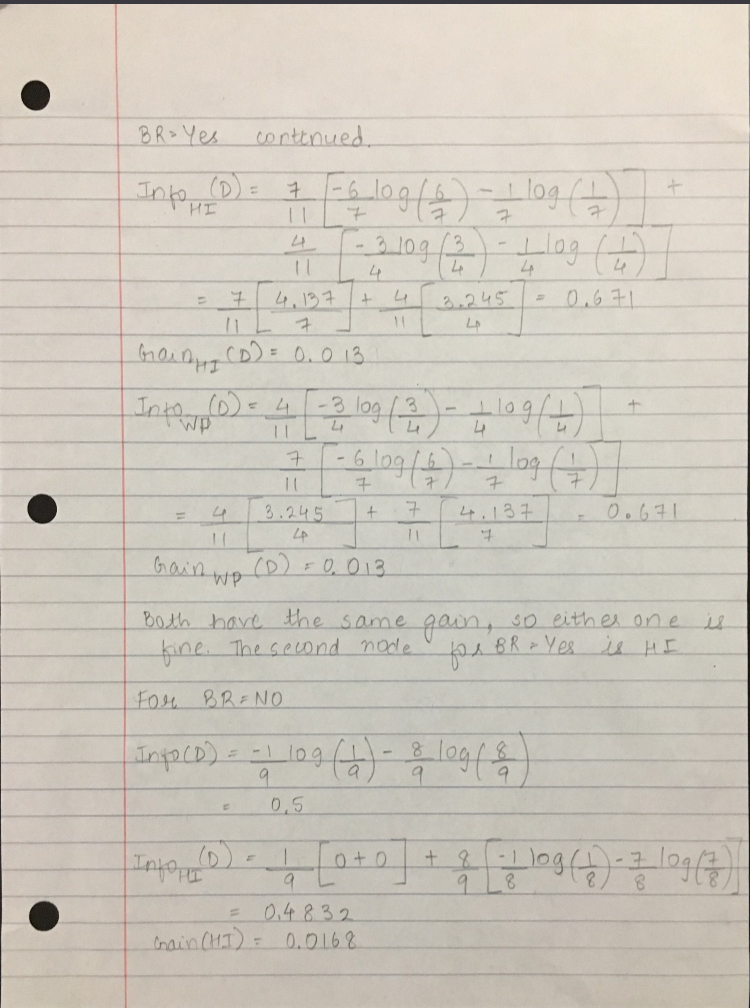 BR=Yes continued.
Info_HI (D) = 7/11 [-6/7 log(6/7) - 1/7 log(1/7)] +
4/11 [-3/4 log(3/4) - 1/4 log(1/4)]
= 7/11 [4.137/7] + 4/11 [3.245/4] = 0.671
Gain_HI (D) = 0.013
Info_WP (D) = 4/11 [-3/4 log(3/4) - 1/4 log(1/4)] +
7/11 [-6/7 log(6/7) - 1/7 log(1/7)]
= 4/11 [3.245/4] + 7/11 [4.137/7] = 0.671
Gain_WP (D) = 0.013
Both have the same gain, so either one is
fine. The second node for BR=Yes is HI
For BR=NO
Info(D) = -1/9 log(1/9) - 8/9 log(8/9)
= 0.5
Info_HI (D) = 1/9 [0+0] + 8/9 [-1/8 log(1/8) - 7/8 log(7/8)]
= 0.4832
Gain(HI) = 0.0168